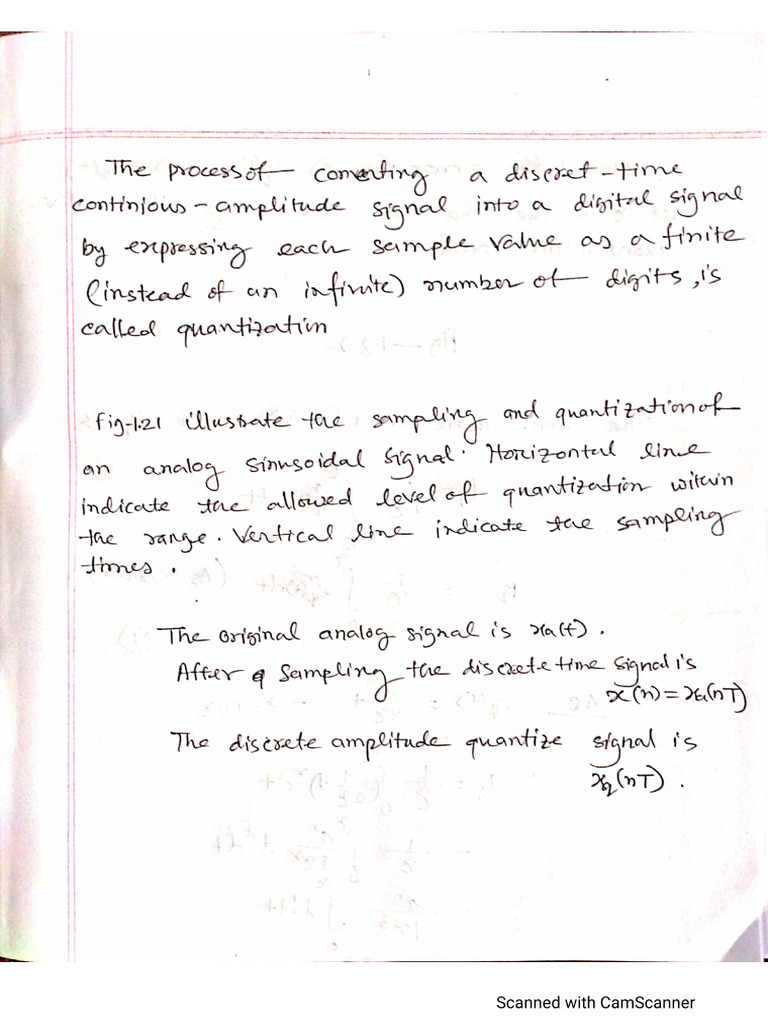 The process of converting a discret-time
continious-amplitude signal into a digital signal
by expressing each sample value as a finite
(instead of an infinite) number of digits, is
called quantization
fig-1.21 illustrate the sampling and quantization of
an analog sinusoidal signal. Horizontal line
indicate the allowed level of quantization within
the range. Vertical line indicate the sampling
times.
The original analog signal is xa(t).
After sampling the discrete time signal is
x(n) = xa(nT)
The discrete amplitude quantize signal is
xq(nT).
Scanned with CamScanner